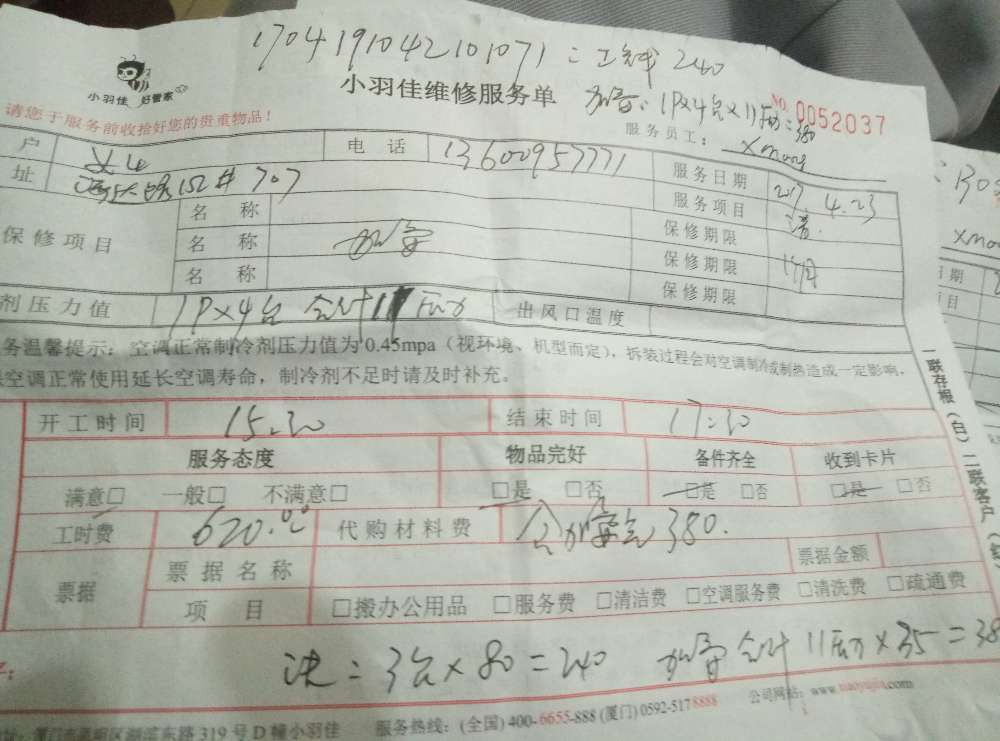 1704191042101071：工钱240
小羽佳 好管家
小羽佳维修服务单
加雪：1P×4台×11压力=380
NO 0052037
请您于服务前收拾好您的贵重物品！
服务员工：
户
电 话 13600957771
服务日期 2017.4.23
址 152# 707
服务项目 清
保修项目
名 称
保修期限
名 称 加雪
保修期限
名 称
保修期限
剂压力值 1P×4台 合计11压力
出风口温度
务温馨提示：空调正常制冷剂压力值为0.45mpa（视环境、机型而定），拆装过程会对空调制冷或制热造成一定影响，
空调正常使用延长空调寿命，制冷剂不足时请及时补充。
开工时间 15:30
结束时间 17:30
服务态度 物品完好 备件齐全 收到卡片
满意□ 一般□ 不满意□ □是 □否 □是 □否 □是 □否
工时费 620.00
代购材料费 含加雪气380.
票据
票据名称
票据金额
项 目 □搬办公用品 □服务费 □清洁费 □空调服务费 □清洗费 □疏通费
洗：3台×80=240 加雪合计11压力×35=38
路319号D幢小羽佳
服务热线：(全国) 400-6655-888 (厦门) 0592-5178888
公司网站：www.xiaoyujia.com
一联存根（白）二联客户